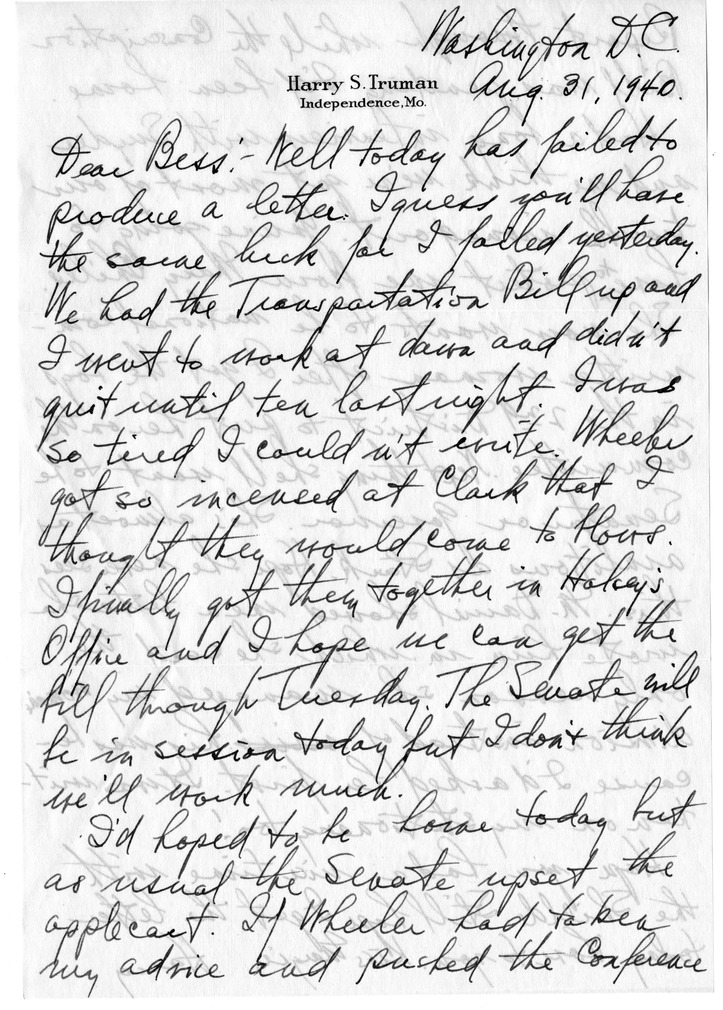 Washington D.C.
Harry S. Truman
Independence, Mo.
Aug. 31, 1940.
Dear Bess:- Well today has failed to
produce a letter. I guess you'll have
the same luck for I failed yesterday.
We had the Transportation Bill up and
I went to work at dawn and didn't
quit until ten last night. I was
so tired I couldn't write. Wheeler
got so incensed at Clark that I
thought they would come to blows.
I finally got them together in Halsey's
Office and I hope we can get the
bill through Tuesday. The Senate will
be in session today but I don't think
we'll work much.
I'd hoped to be home today but
as usual the Senate upset the
applecart. If Wheeler had taken
my advice and pushed the Conference